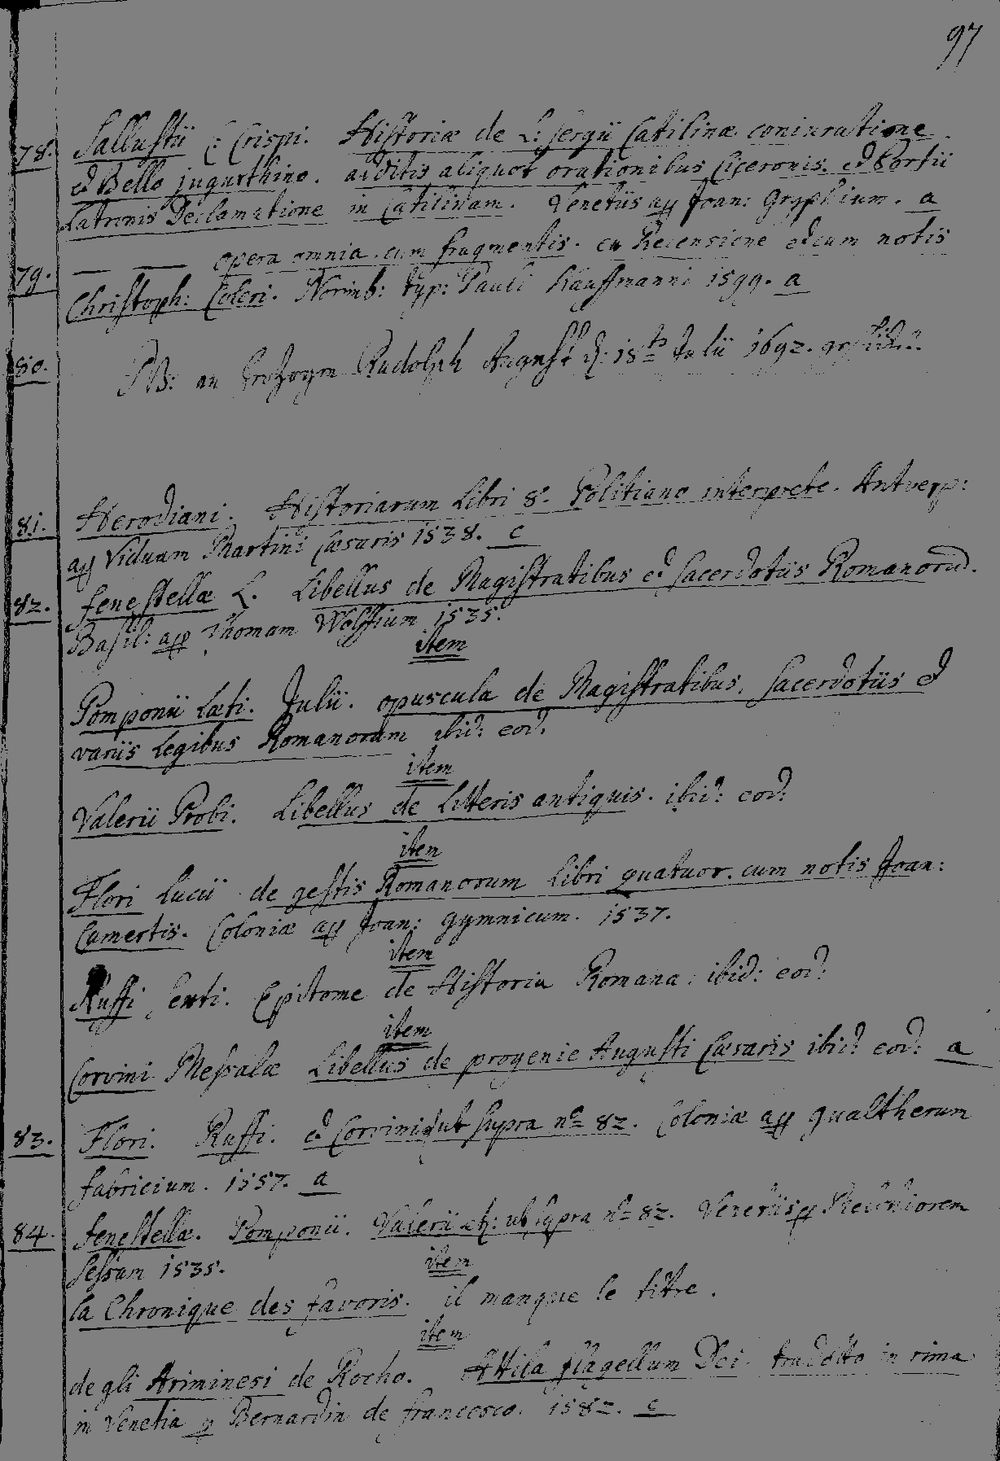 97
78. Sallustii C: Crispi. Historiæ de L: Sergii Catilinæ coniuratione
et Bello jugurthino. additis aliquot orationibus Ciceronis. et Portii
Latronis Declamatione in Catilinam. Venetiis apq Joan: Gryphium. a
79. — — opera omnia. cum fragmentis. ex Recensione et cum notis
Christoph: Coleri. Norimb: typ: Pauli Kauffmanni 1599. a
80. NB: an Herzogen Rudolph August d: 18ts Julii 1692.
81. Herodiani. Historiarum Libri 8. Politiano interprete. Antverp:
apq Viduam Martini Cæsaris 1538. c
82. Fenestellæ L. Libellus de Magistratibus et Sacerdotiis Romanorū.
Basil: apq Thomam Wolffium 1535.
item
Pomponii Læti. Julii. opuscula de Magistratibus, Sacerdotiis et
variis Legibus Romanorum ibid: eod:
item
Valerii Probi. Libellus de Litteris antiquis. ibid: eod:
item
Flori Lucii de gestis Romanorum Libri quatuor. cum notis Joan:
Camertis. Coloniæ apq Joan: gymnicum. 1537.
item
Ruffi Sexti. Epitome de Historia Romana. ibid: eod:
item
Corvini Messalæ Libellus de progenie Augusti Cæsaris ibid: eod: a
83. Flori. Ruffi. et Corvini ut supra no 82. Coloniæ apq gualtherum
fabricium. 1557. a
84. fenestellæ. Pomponii. Valerii ut supra no 82. Venetiis Melchiorem
Sessam 1535.
item
la Chronique des favoris. il manque le titre.
item
degli Ariminesi de Rocho. Attila flagellum Dei. tradotto in rima
in Venetia p Bernardin de francesco. 1582. c